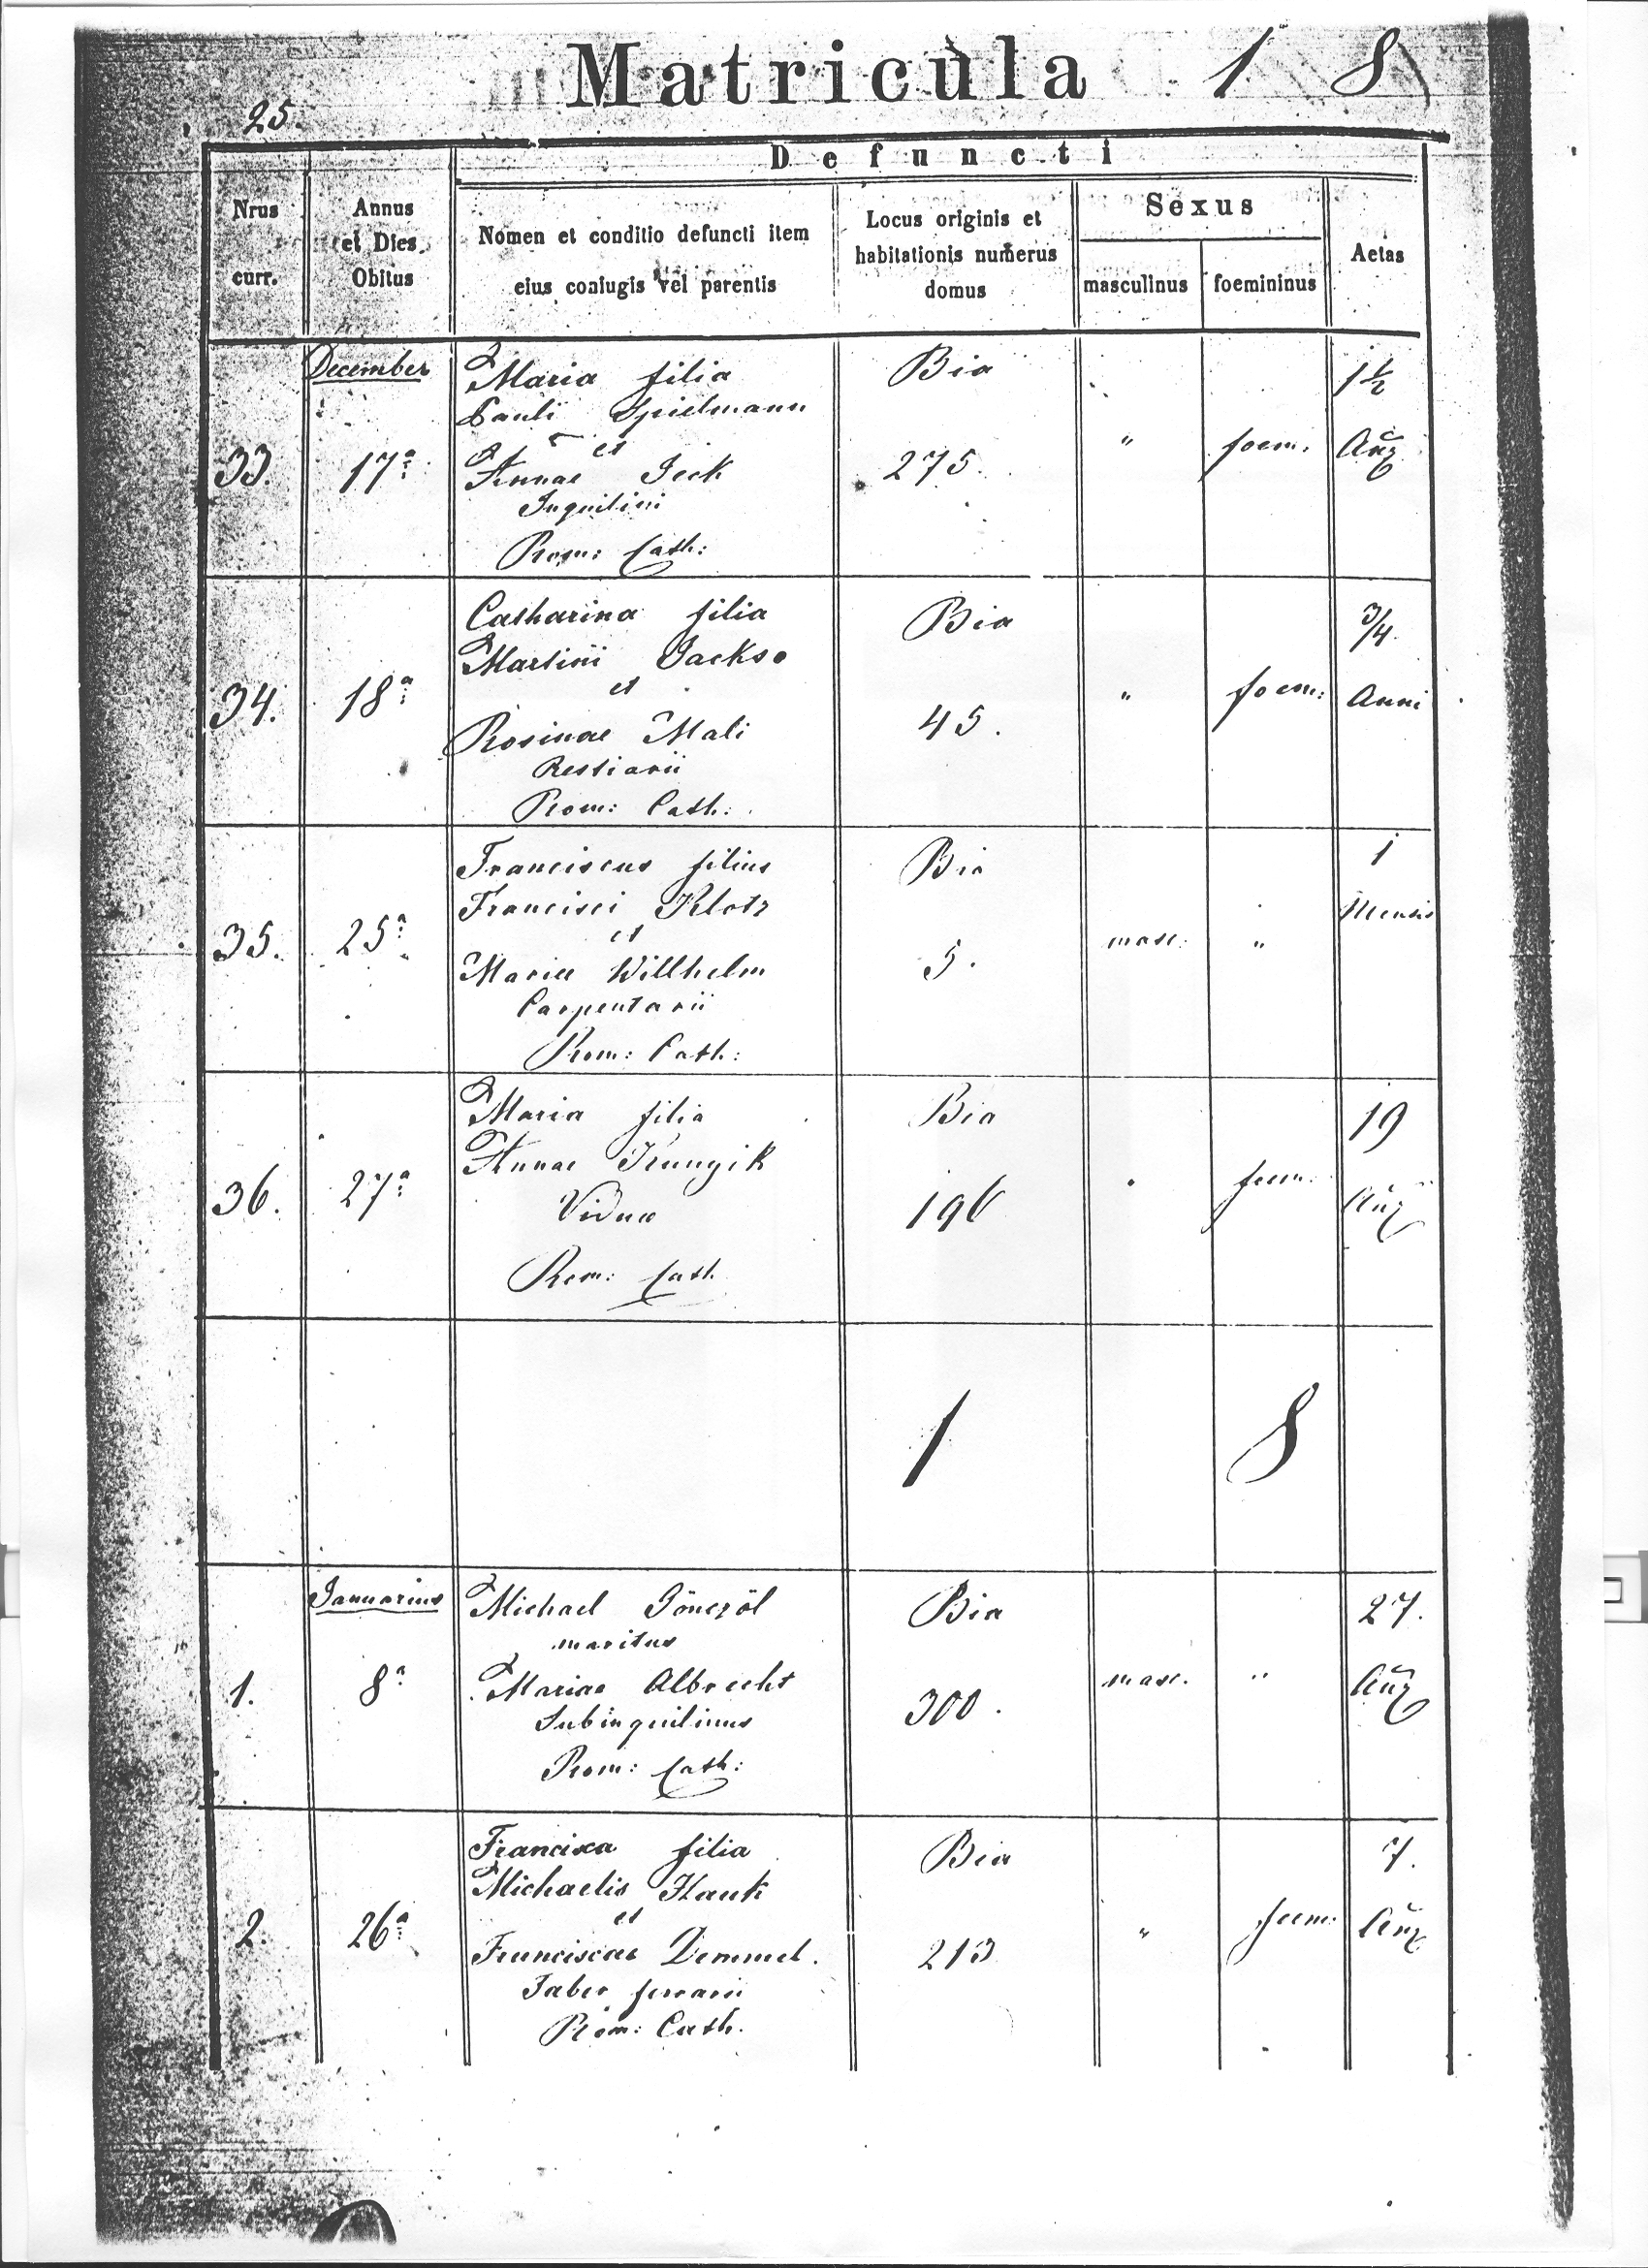 Matricùla 1 8
25.
Defuncti
Nrus curr.
Annus et Dies Obitus
Nomen et conditio defuncti item eius coniugis vel parentis
Locus originis et habitationis numerus domus
Sexus
masculinus
foemininus
Aetas
December
Maria filia
Pauli Spielmann
et
Annae Jeck
Inquilini
Rom: Cath:
33.
17ª
Bia
275.
"
foem.
1½
Catharina filia
Martini Jackso
et
Rosinae Mali
Restiarii
Rom: Cath:
34.
18ª
Bia
45.
"
foem:
3/4
Anni
Franciscus filius
Francisci Klotz
et
Mariae Willhelm
Carpentarii
Rom: Cath:
35.
25ª
Bia
5.
masc.
"
1
Mensis
Maria filia
Annae Kungik
Vidua
Rom: Cath
36.
27ª
Bia
196
foem.
19
1 8
Januarius
Michael Gönczöl
maritus
Mariae Albrecht
Subinquilinus
Rom: Cath:
1.
8ª
Bia
300.
masc.
"
27.
Francisca filia
Michaelis Hauk
et
Franciscae Demmel.
Faber ferrarii
Rom: Cath.
2.
26ª
Bia
213
"
foem:
7.